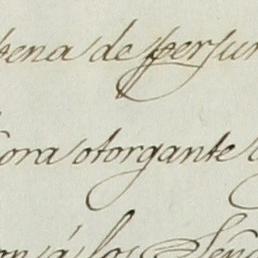 pena de perjur
ora otorgante
on á los Seño